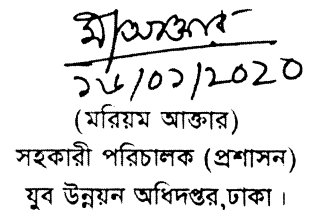 ১৬/০১/2020
(মরিয়ম আক্তার)
সহকারী পরিচালক (প্রশাসন)
যুব উন্নয়ন অধিদপ্তর,ঢাকা।